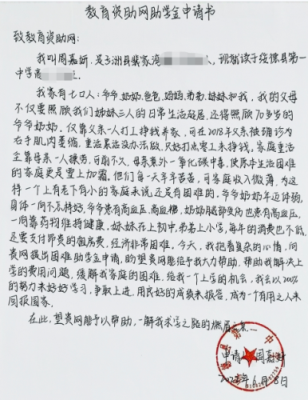 教育资助网助学金申请书
致教育资助网:
我叫周嘉妍,是子洲县裴家湾 现就读于绥德县第一
中学高
我家有七口人:爷爷、奶奶、爸爸、妈妈、弟弟、妹妹和我,我的父母
不仅要照顾我们姊妹三人的日常生活起居,还得照顾70多岁的
爷爷奶奶,仅靠父亲一人打工挣钱养家,可在2018年父亲被确诊为
右手肌肉萎缩,重活累活没办法做,只好打些零工来挣钱,家庭重
主靠母亲一人操劳,可前不久,母亲意外一氧化碳中毒,使原本生活困难
的家庭更是雪上加霜。他们每一天辛辛苦苦,可家庭收入微薄,为这
持一个上有老下有小的家庭来说还是有困难的,爷爷奶奶年迈体弱,
身体一向不怎么好,爷爷患有高血压、高血糖,奶奶腿部患有高血压,
一向靠药物维持健康,妹妹在上初中,弟弟上小学,每年的消费也不低,
还要支付昂贵的租房费,经济非常困难。今天,我抱着复杂的心情,向
贵网提出困难助学金申请,盼望贵网能给予我大力帮助,帮助我解决上
学的费用问题,缓解我家庭的困难,给我一个上学的机会,我会以200%
的努力来好好学习,争取上进,用良好的成绩来报答,成为一个有用之人来
回报国家。
在此,望贵网能予以帮助,解我求学之路的燃眉之急。
申请人:周嘉妍